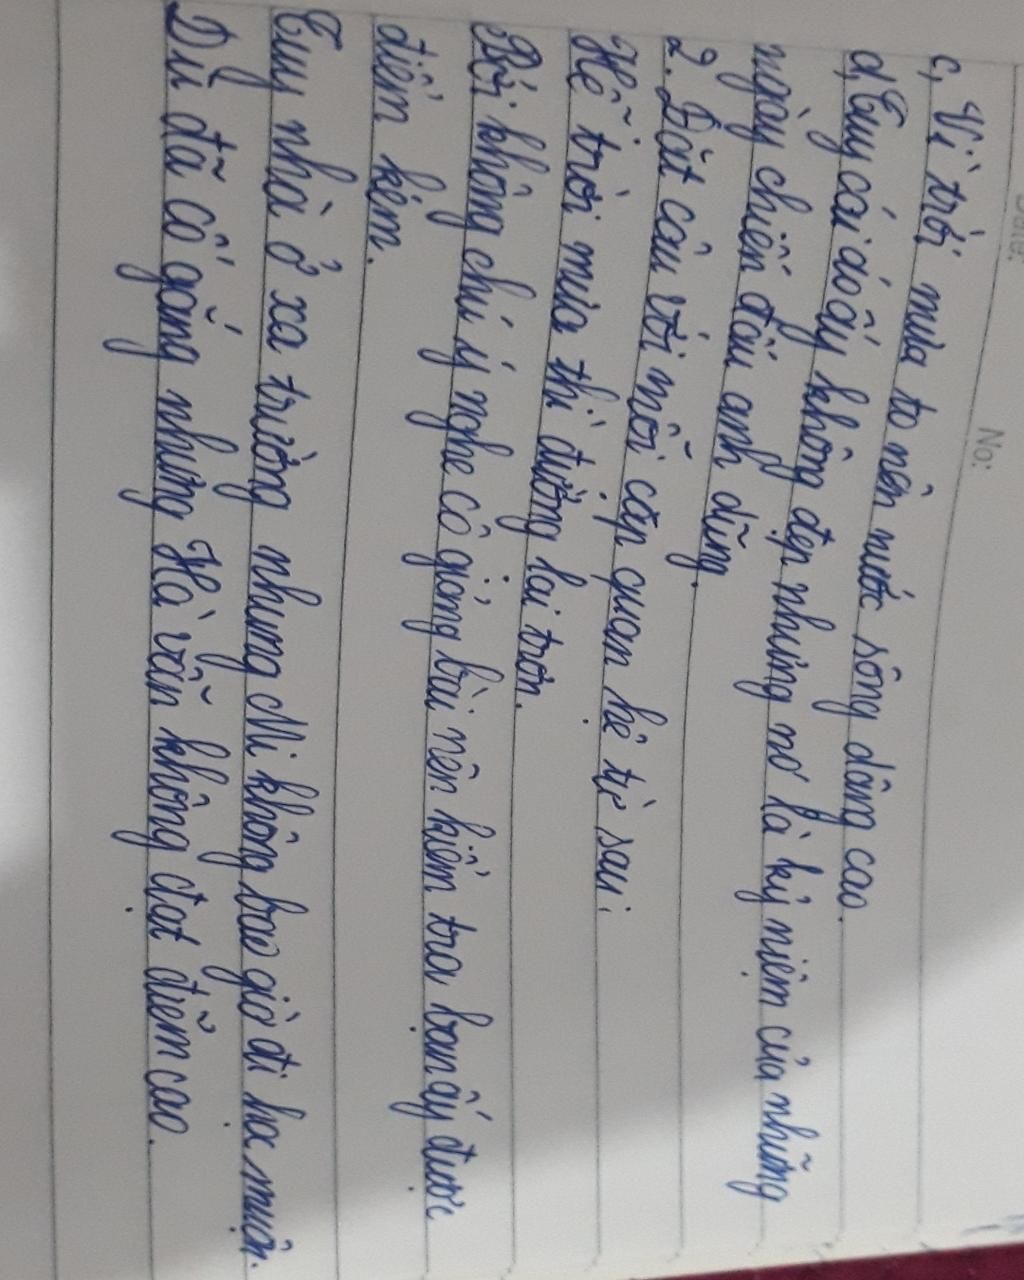 Date:
No:
c, Vì trời mưa to nên nước sông dâng cao.
d, Tuy cái áo ấy không đẹp nhưng nó là kỷ niệm của những
ngày chiến đấu anh dũng.
2. Đặt câu với mỗi cặp quan hệ từ sau:
Hễ trời mưa thì đường lại trơn.
Bởi không chú ý nghe cô giảng bài nên kiểm tra bạn ấy được
điểm kém.
Tuy nhà ở xa trường nhưng Mi không bao giờ đi học muộn.
Dù đã cố gắng nhưng Hà vẫn không đạt điểm cao.